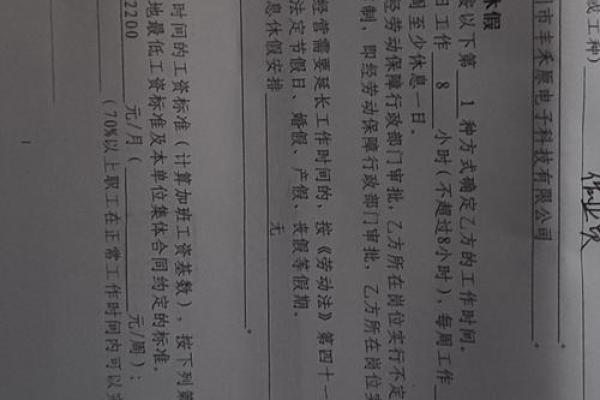 成工种）
作业员
市丰禾原电子科技有限公司
休假
按以下第 1 种方式确定乙方的工作时间。
日工作 8 小时（不超过8小时），每周工作
周至少休息一日。
经劳动保障行政部门审批，乙方所在岗位实行不定
制，即经劳动保障行政部门审批，乙方所在岗位实
经营需要延长工作时间的，按《劳动法》第四十一
法定节假日、婚假、产假、丧假等假期。
息休假安排 无
时间的工资标准（计算加班工资基数），按下列第
地最低工资标准及本单位集体合同约定的标准。
2200 元/月（ 元/周）；
（70%以上职工在正常工作时间内可以完